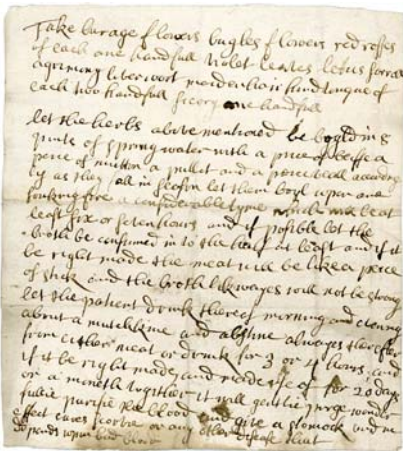 Take burage flowers bugles flowers red roses
of each one handfull violet leaves letus sorrall
agrimony liverwort maidenhair hindtongue of
each two handfull sicory one handfull
let the herbs abovementioned be boyld in 5
pints of spring water with a piece of beiffe a
peice of mutton a pullet and a peice veall accordng
ly as they all in season let them boyl upon one
fire a considerable tyme which will be at
least six or seten hours and if posible let the
broth be consumed in to the half at least and if it
be right made the meat will be like a peice
of stick and the broth likwayes will not be strong
let the patient drink thereof morning and evening
about a mutchkine and abstine always therafter
from either meat or drink for 3 or 4 hours, and
if it be right made, and made use of for 20 days
or a moneth together it will gentlie purge wonder
fullie purifie the blood and give a stomock and in
effect cures scorbie or any other disease that
depends upon bad blood